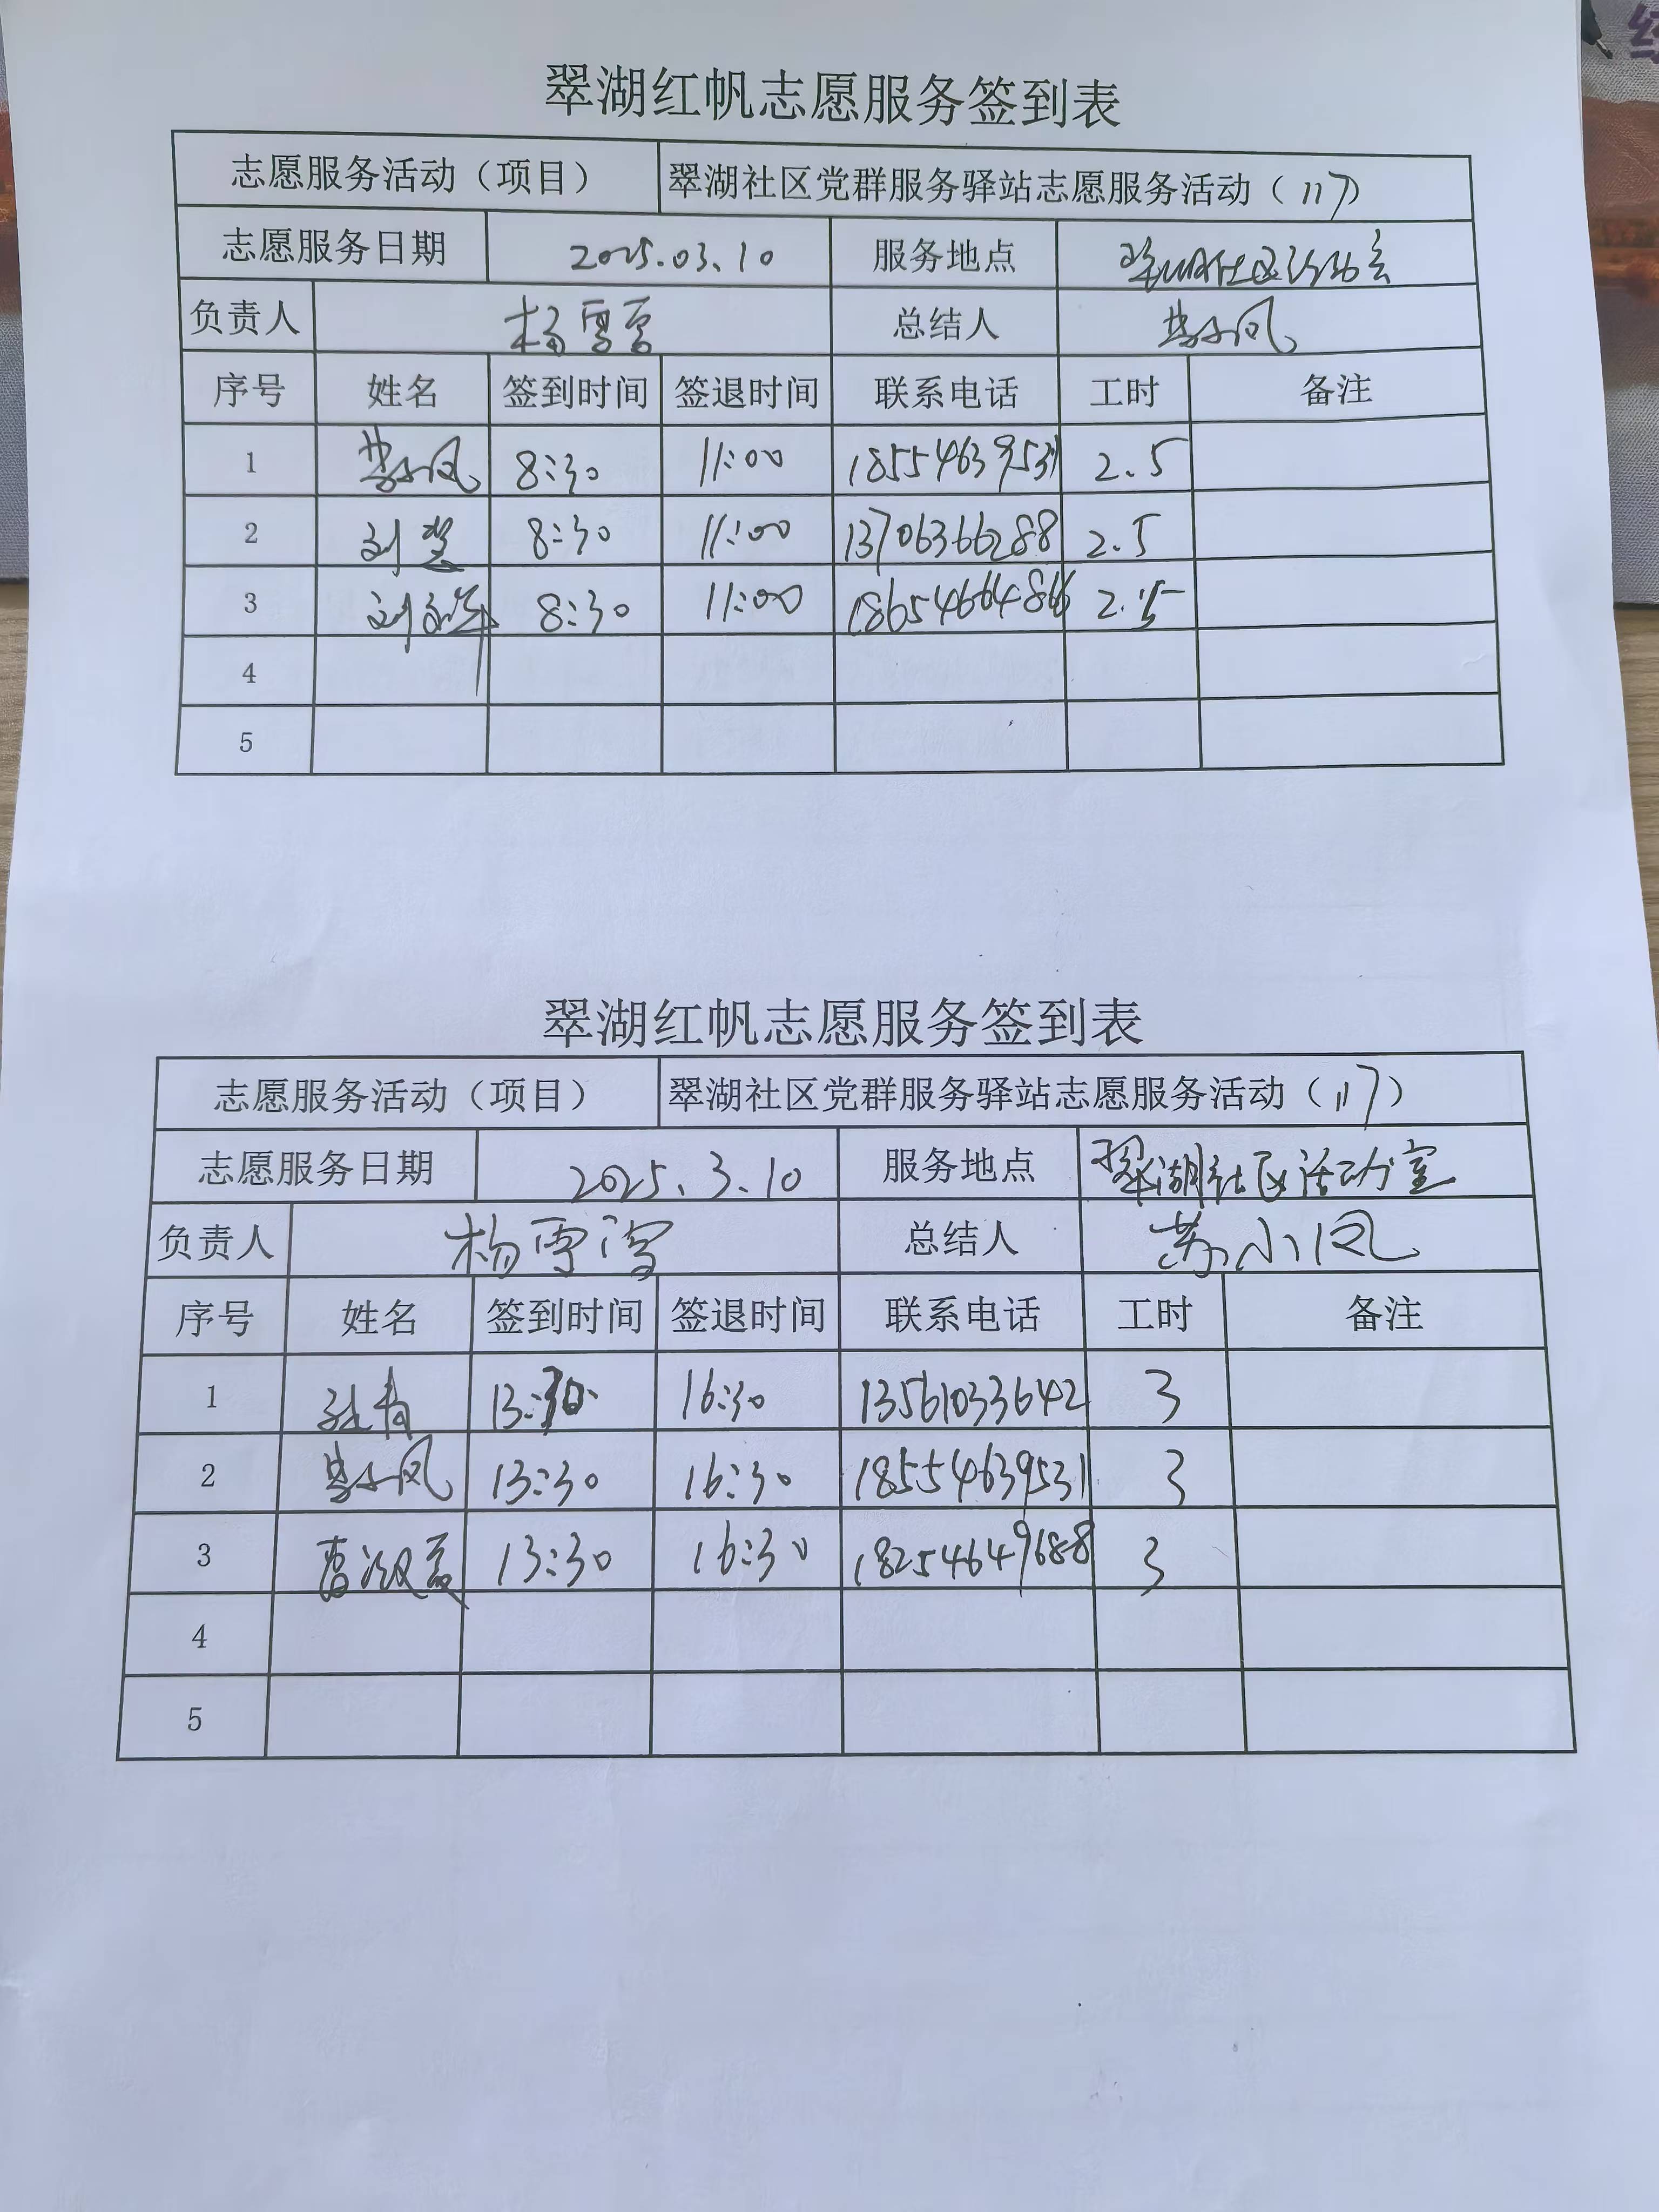 翠湖红帆志愿服务签到表
志愿服务活动（项目） 翠湖社区党群服务驿站志愿服务活动（117）
志愿服务日期 2025.03.10 服务地点 翠湖社区活动室
负责人 杨雪雪 总结人
序号 姓名 签到时间 签退时间 联系电话 工时 备注
1 8:30 11:00 18554639531 2.5
2 刘 8:30 11:00 13706366288 2.5
3 刘 8:30 11:00 2.5
4
5
翠湖红帆志愿服务签到表
志愿服务活动（项目） 翠湖社区党群服务驿站志愿服务活动（117）
志愿服务日期 2025.3.10 服务地点 翠湖社区活动室
负责人 杨雪 总结人 苏小凤
序号 姓名 签到时间 签退时间 联系电话 工时 备注
1 13:30 16:30 13561033642 3
2 13:30 16:30 18554639531 3
3 13:30 16:30 18254649688 3
4
5